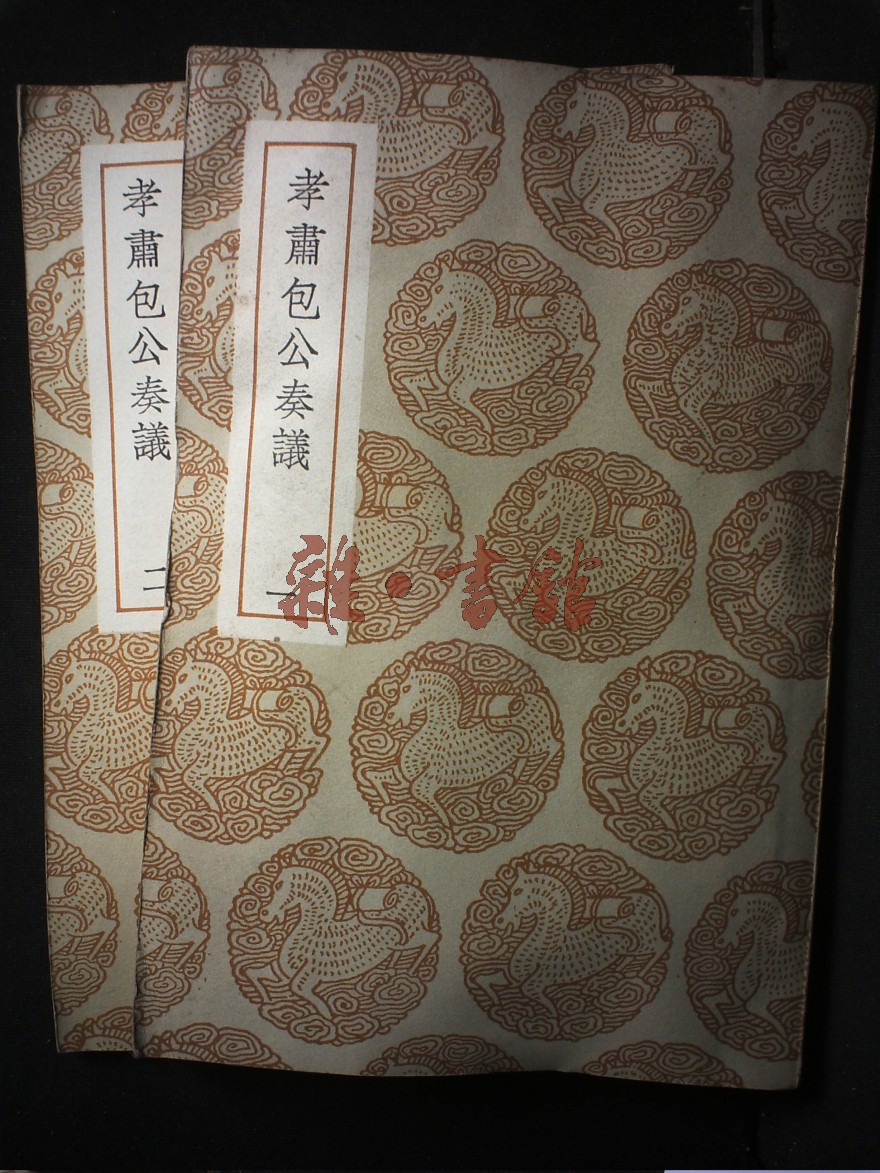 孝肅包公奏議
二
孝肅包公奏議
一
雜·書館